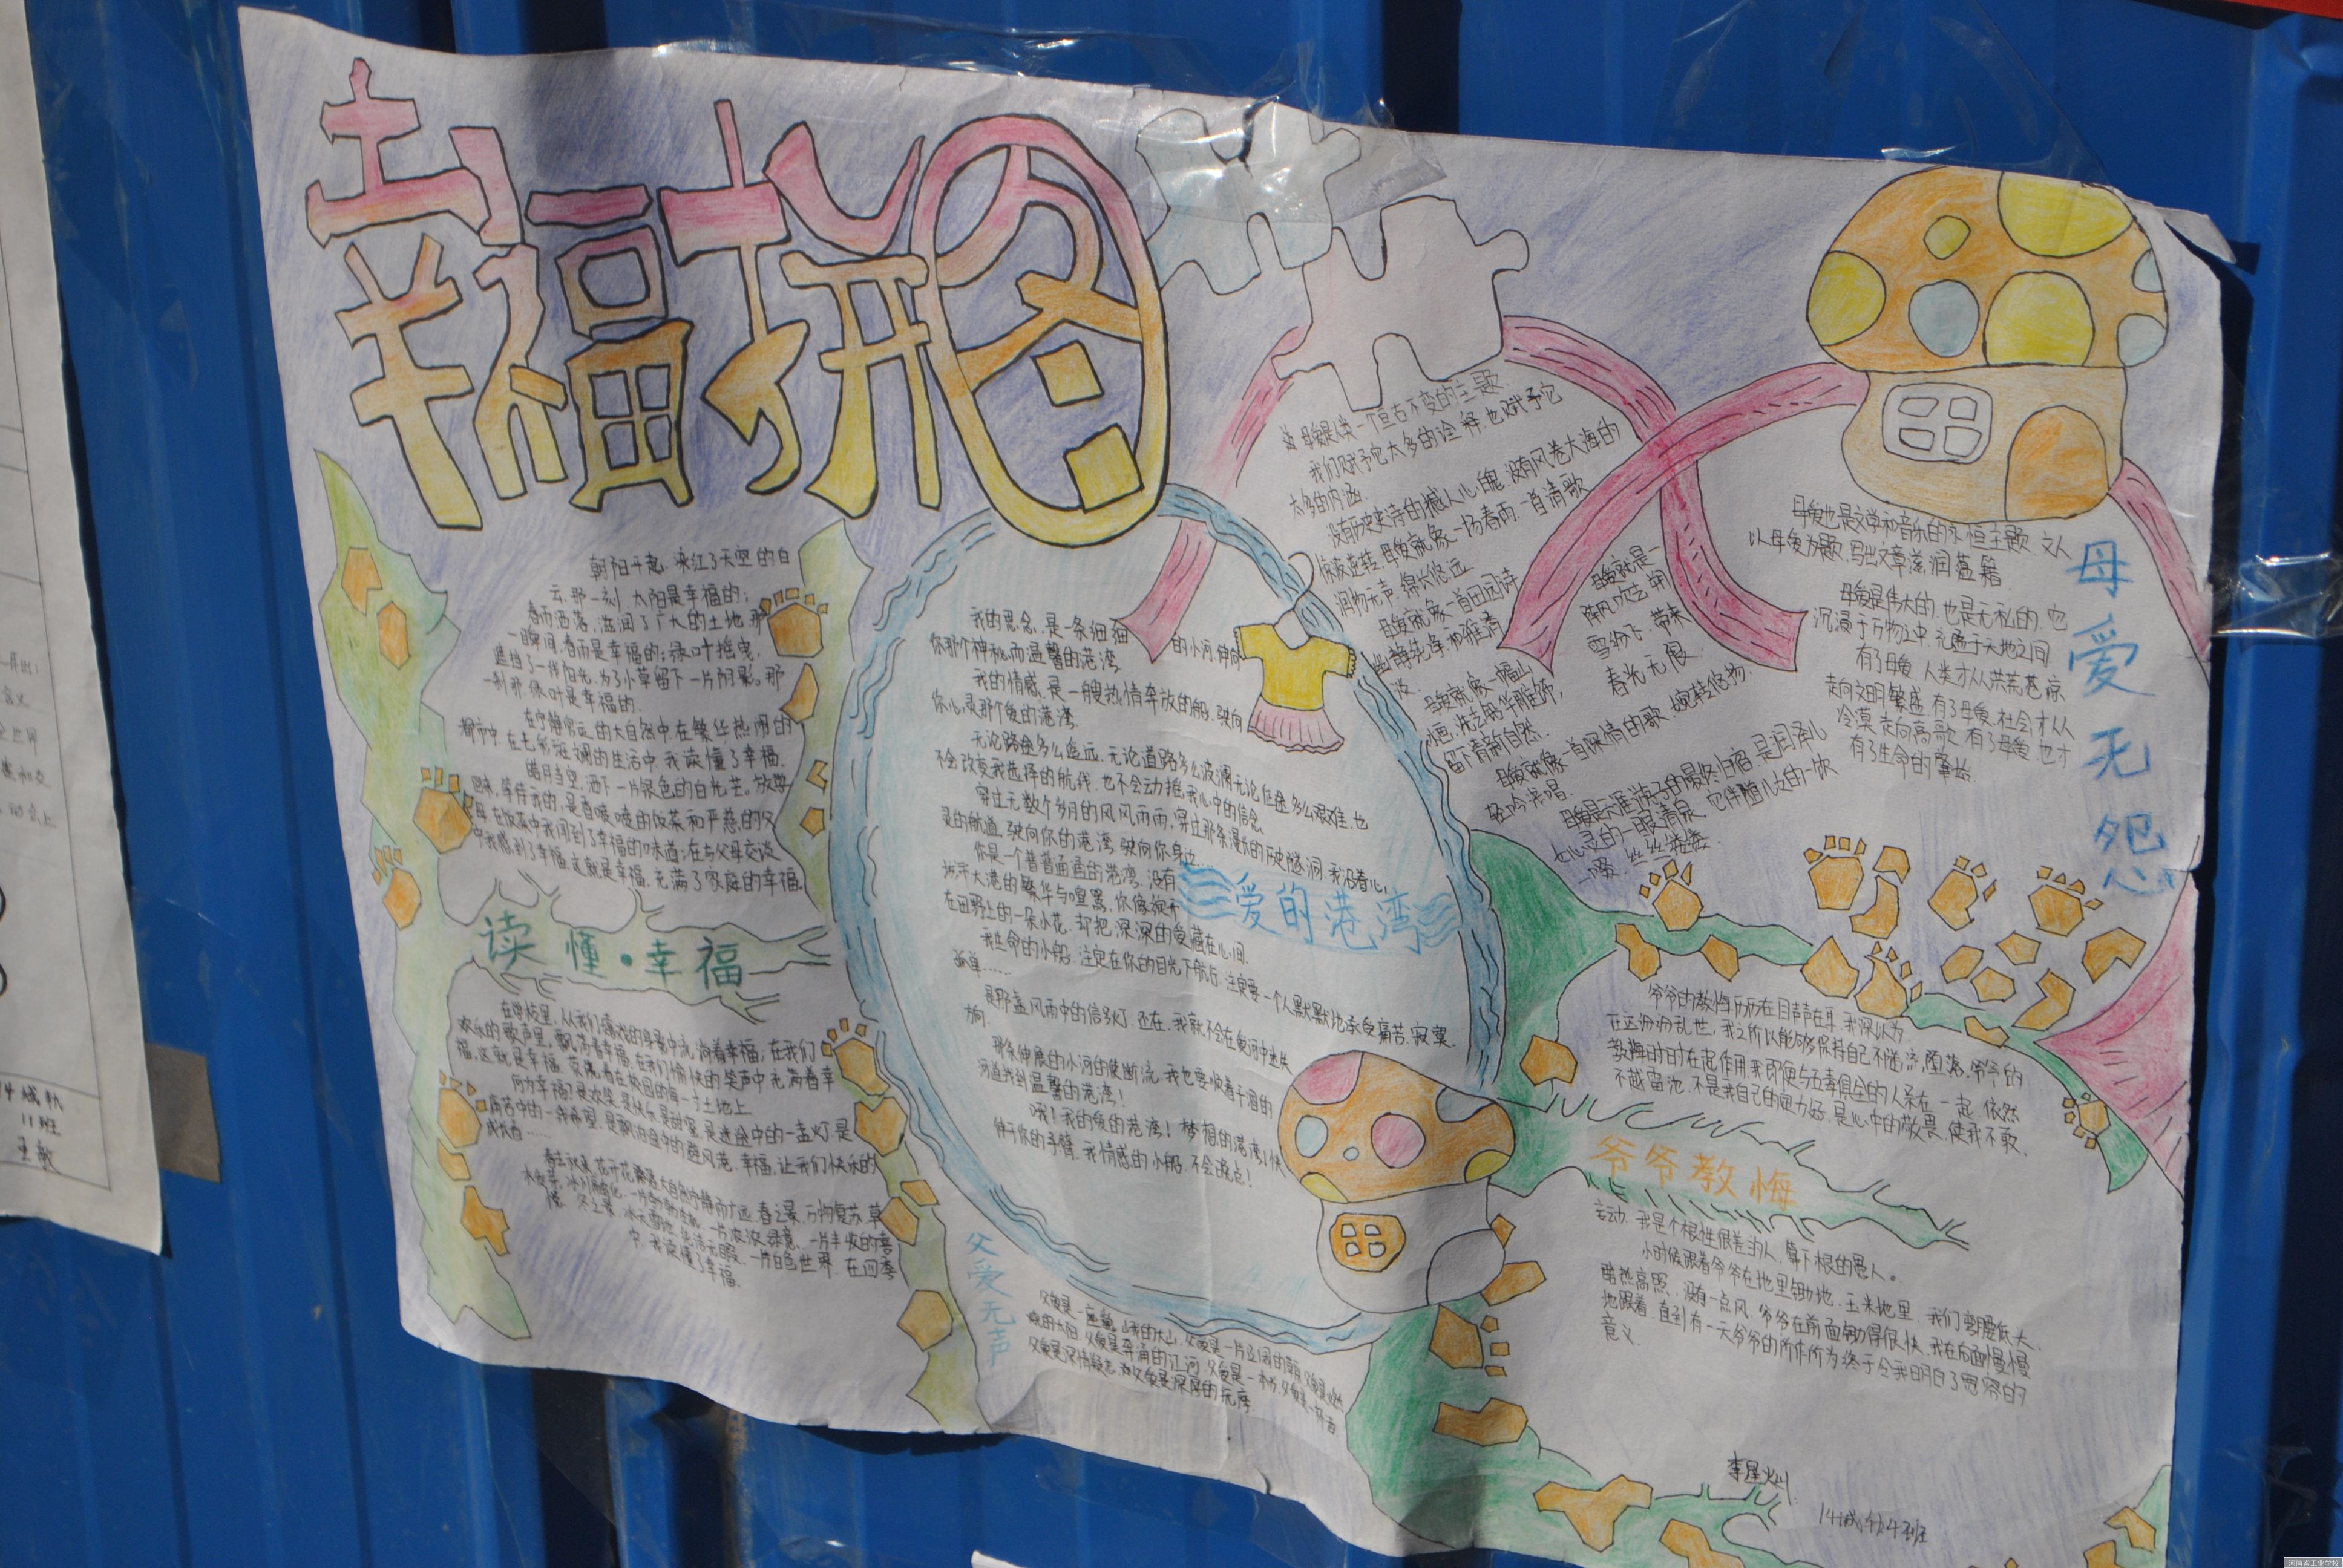 幸福拼图
朝阳升起，染红了天空的白
云，那一刻，太阳是幸福的；
春雨洒落，滋润了广大的土地，那
一瞬间，春雨是幸福的；绿叶摇曳，
遮挡了一线阳光，为了小草留下一片阴影。那
一刹那，绿叶是幸福的。
在宁静宽远的大自然中，在繁华热闹的
都市中，在七彩斑斓的生活中，我读懂了幸福。
皓月当空，洒下一片银色的白光芒。放学
回来，等待我的，是香喷喷的饭菜和严慈的父
母，在饭菜中我闻到了幸福的味道；在与父母交谈
中我感到了幸福，这就是幸福，充满了家庭的幸福。
读懂·幸福
在学校里，从我们嬉戏的身影中流淌着幸福；在我们
欢乐的歌声里，飘荡着幸福；在我们愉快的笑声中充满着幸
福，这就是幸福，荡漾着在校园的每一寸土地上
何为幸福？是欢笑，是快乐，是甜蜜，是迷途中的一盏灯，是
痛苦中的一线希望，是飘泊途中的避风港，幸福，让我们快乐的
成长着……
中，我读懂了幸福。
我的思念，是一条细细的小河，伸向
你那个神秘而温馨的港湾
我的情感，是一艘热情奔放的船，驶向
你心灵那个爱的港湾
无论路途多么遥远，无论道路多么波澜，无论征途多么艰难，也
不会改变我选择的航线，也不会动摇我心中的信念
穿过无数个岁月的风风雨雨，穿过那条漫长的历史隧洞，我沿着心
灵的航道，驶向你的港湾，驶向你身边……
你是一个普普通通的港湾，没有
海洋大港的繁华与喧嚣，你像绽开
在田野上的一朵小花，却把深深的爱藏在心间
爱的港湾
我生命的小船，注定在你的目光下航行，注定要一个人默默地承受痛苦，寂寞，
孤单……
是那盏风雨中的信号灯，还在，我就不会在爱河中迷失
方向
那条伸展的小河的使断流，我也要顺着干涸的
河道找到温馨的港湾！
哦！我的爱的港湾！梦想的港湾！快
伸开你的手臂，我情感的小船，不会晚点！
父爱无声
母爱是人类一个亘古不变的主题
我们赋予它太多的诠释，也赋予它
太多的内涵
没有历史史诗的撼人心魄，没有风卷大海的
惊波逆转，母爱就像一场春雨，一首清歌
润物无声，绵长悠远
母爱就像一首田园诗
幽静纯净，和雅清
淡
母爱就像一幅山
水画，洗去铅华雕饰，
留下清新自然
母爱就像一首深情的歌，婉转悠扬，
轻吟浅唱
母爱就是一
阵风，吹去朔
雪纷飞，带来
春光无限
母爱是天涯游子的最终归宿，是润泽心
心灵的一眼清泉，它伴随儿女的一饮
一啜，丝丝缕缕
母爱也是文学和音乐的永恒主题，文人
以母爱为题，写出文章滋润蕴籍
母爱是伟大的，也是无私的，它
沉浸于万物之中，充盈于天地之间
有了母爱，人类才从洪荒苍凉
走向文明繁盛，有了母爱，社会才从
冷漠走向高歌，有了母爱，也才
有了生命的肇始
母爱无怨
爷爷的教悔历历在目声声在耳，我深认为
在这纷纷乱世，我之所以能够保持自己不随流，堕落，爷爷的
教悔时时在起作用，我即便与五毒俱全的人杂在一起，依然
不越雷池，不是我自己的定力好，是心中的敬畏，使我不敢
爷爷教悔
妄动，我是个根性很差的人，算下根的愚人。
小时候跟着爷爷在地里锄地，玉米地里，我们弯腰低头，
酷热高照，没有一点风，爷爷在前面锄得很快，我在后面慢慢
地跟着，直到有一天爷爷的所作所为终于令我明白了宽容的
意义
李星灿
14城轨4班
14城轨
11班
王敏
河南省工业学校